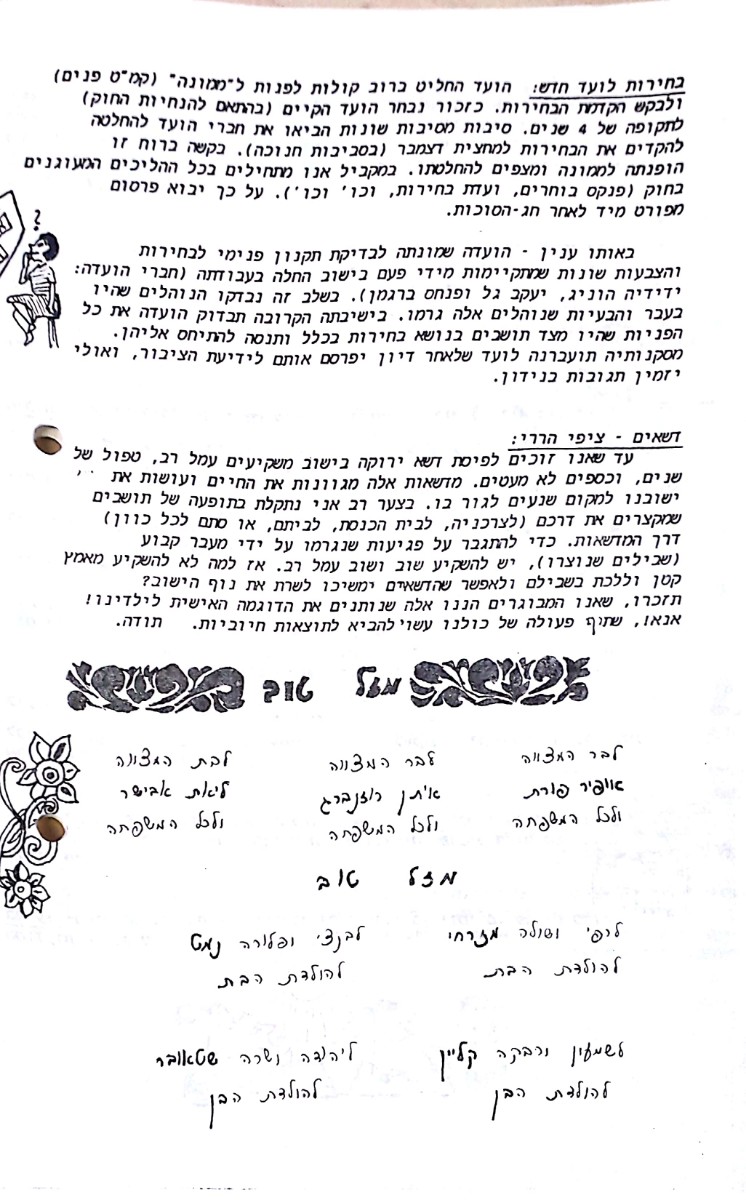 בחירות לועד חדש: הועד החליט ברוב קולות לפנות ל"ממונה" (קמ"ט פנים)
ולבקש הקדמת הבחירות. כזכור נבחר הועד הקיים (בהתאם להנחיות החוק)
לתקופה של 4 שנים. סיבות מסיבות שונות הביאו את חברי הועד להחלטה
להקדים את הבחירות למחצית דצמבר (בסביבות חנוכה). בקשה ברוח זו
הופנתה לממונה ומצפים להחלטתו. במקביל אנו מתחילים בכל ההליכים המעוגנים
בחוק (פנקס בוחרים, ועדת בחירות, וכו' וכו'). על כך יבוא פרסום
מפורט מיד לאחר חג-הסוכות.
?
באותו ענין - הועדה שמונתה לבדיקת תקנון פנימי לבחירות
והצבעות שונות שמתקיימות מידי פעם בישוב החלה בעבודתה (חברי הועדה:
ידידיה הוניג, יעקב גל ופנחס ברגמן). בשלב זה נבדקו הנוהלים שהיו
בעבר והבעיות שנוהלים אלה גרמו. בישיבתה הקרובה תבדוק הועדה את כל
הפניות שהיו מצד תושבים בנושא בחירות בכלל ותנסה להתיחס אליהן.
מסקנותיה תועברנה לועד שלאחר דיון יפרסם אותם לידיעת הציבור, ואולי
יזמין תגובות בנידון.
דשאים - ציפי הררי:
עד שאנו זוכים לפיסת דשא ירוקה בישוב משקיעים עמל רב, טפול של
שנים, וכספים לא מעטים. מדשאות אלה מגוונות את החיים ועושות את
ישובנו למקום שנעים לגור בו. בצער רב אני נתקלת בתופעה של תושבים
שמקצרים את דרכם (לצרכניה, לבית הכנסת, לביתם, או סתם לכל כוון)
דרך המדשאות. כדי להתגבר על פגיעות שנגרמו על ידי מעבר קבוע
(שבילים שנוצרו), יש להשקיע שוב ושוב עמל רב. אז למה לא להשקיע מאמץ
קטן וללכת בשבילם ולאפשר שהדשאים ימשיכו לשרת את נוף הישוב?
תזכרו, שאנו המבוגרים הננו אלה שנותנים את הדוגמה האישית לילדינו!
אנא!, שתוף פעולה של כולנו עשוי להביא לתוצאות חיוביות. תודה.
מזל טוב
לבר המצווה
אופיר פורת
ולכל המשפחה
לבר המצווה
איתן רוזנברג
ולכל המשפחה
לבת המצווה
ליאת אבישר
ולכל המשפחה
מזל טוב
לרפי ושולה מזרחי
להולדת הבת
לבנצי ופלורה נמט
להולדת הבת
לשמעון ורבקה קליין
להולדת הבן
ליהודה ושרה שטאובר
להולדת הבן